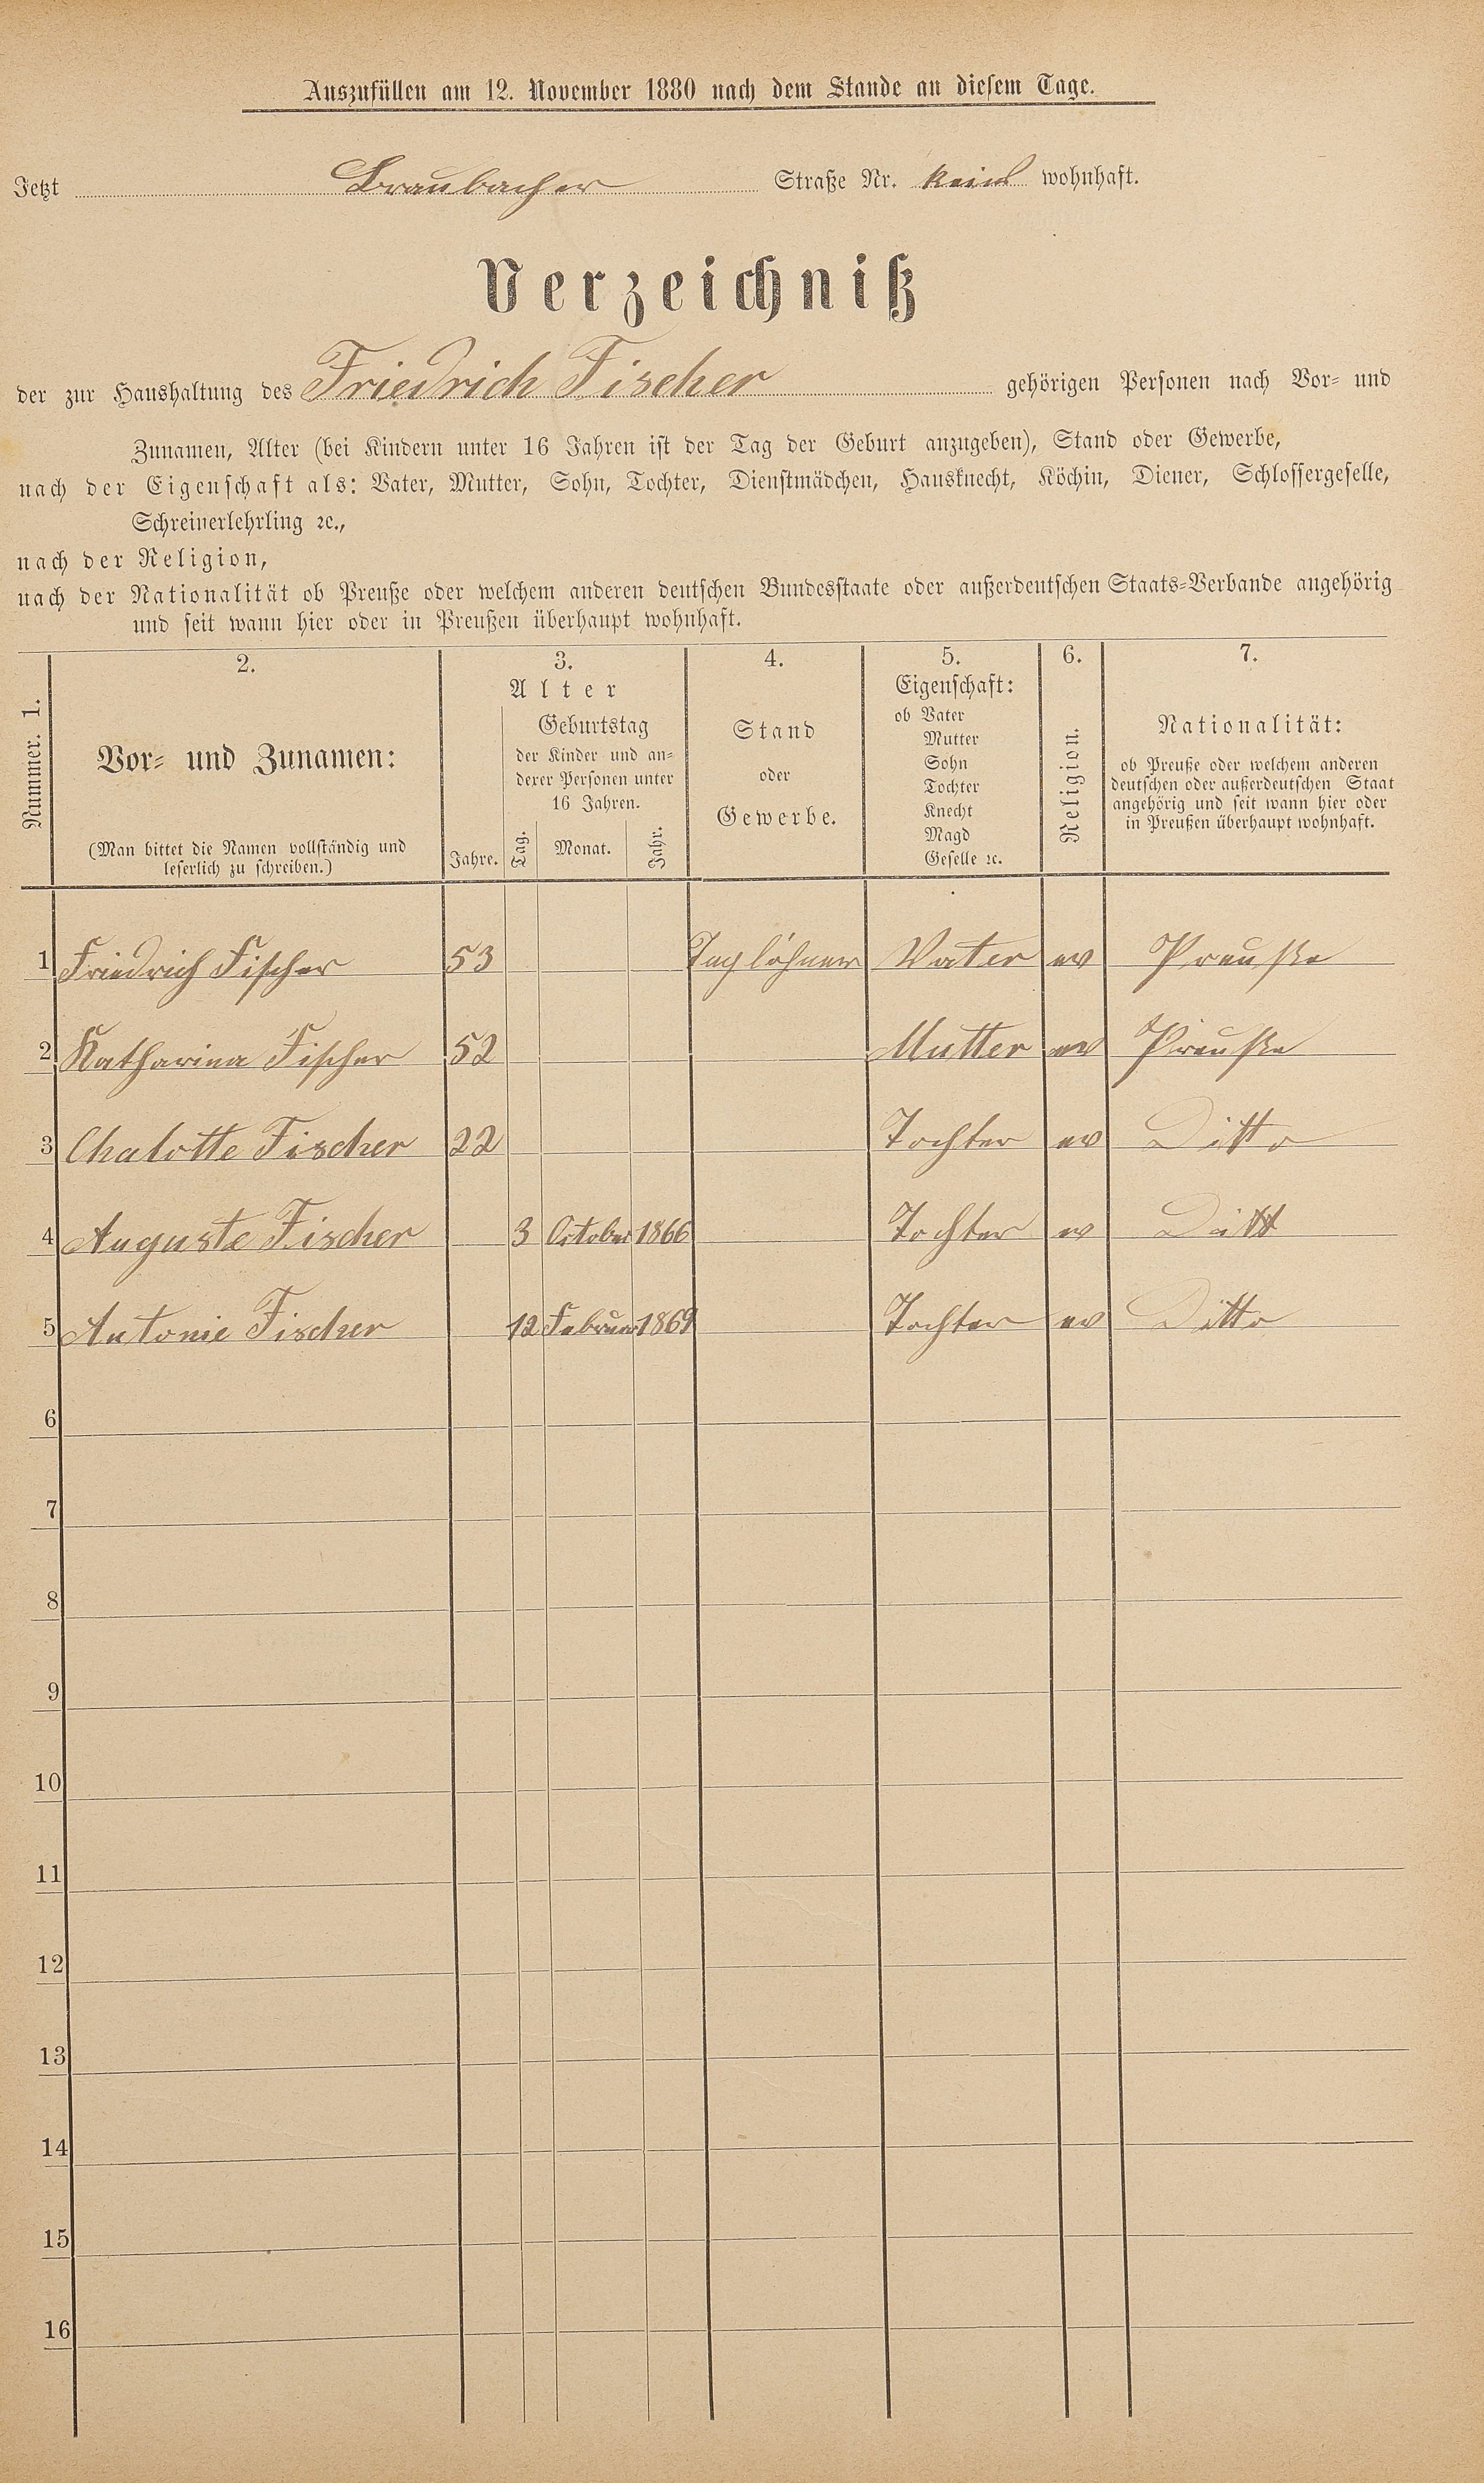 Auszufüllen am 12. November 1880 nach dem Stande an diesem Tage.
Jetzt Braubacher Straße Nr. keine wohnhaft.
Verzeichniß
der zur Haushaltung des Friedrich Fischer gehörigen Personen nach Vor- und
Zunamen, Alter (bei Kindern unter 16 Jahren ist der Tag der Geburt anzugeben), Stand oder Gewerbe,
nach der Eigenschaft als: Vater, Mutter, Sohn, Tochter, Dienstmädchen, Hausknecht, Köchin, Diener, Schlossergeselle,
Schreinerlehrling ꝛc.,
nach der Religion,
nach der Nationalität ob Preuße oder welchem anderen deutschen Bundesstaate oder außerdeutschen Staats-Verbande angehörig
und seit wann hier oder in Preußen überhaupt wohnhaft.
Nummer. 1.
2.
Vor- und Zunamen:
(Man bittet die Namen vollständig und
leserlich zu schreiben.)
3.
Alter
Jahre.
Geburtstag
der Kinder und an-
derer Personen unter
16 Jahren.
Tag. Monat. Jahr.
4.
Stand
oder
Gewerbe.
5.
Eigenschaft:
ob Vater
Mutter
Sohn
Tochter
Knecht
Magd
Geselle ꝛc.
6.
Religion.
7.
Nationalität:
ob Preuße oder welchem anderen
deutschen oder außerdeutschen Staat
angehörig und seit wann hier oder
in Preußen überhaupt wohnhaft.
1 Friedrich Fischer 53 Taglöhner Vater ev Preuße
2 Katharina Fischer 52 Mutter ev Preuße
3 Chalotte Fischer 22 Tochter ev Ditto
4 Auguste Fischer 3 October 1866 Tochter ev Ditt
5 Antonie Fischer 12 Februar 1869 Tochter ev Ditto
6
7
8
9
10
11
12
13
14
15
16